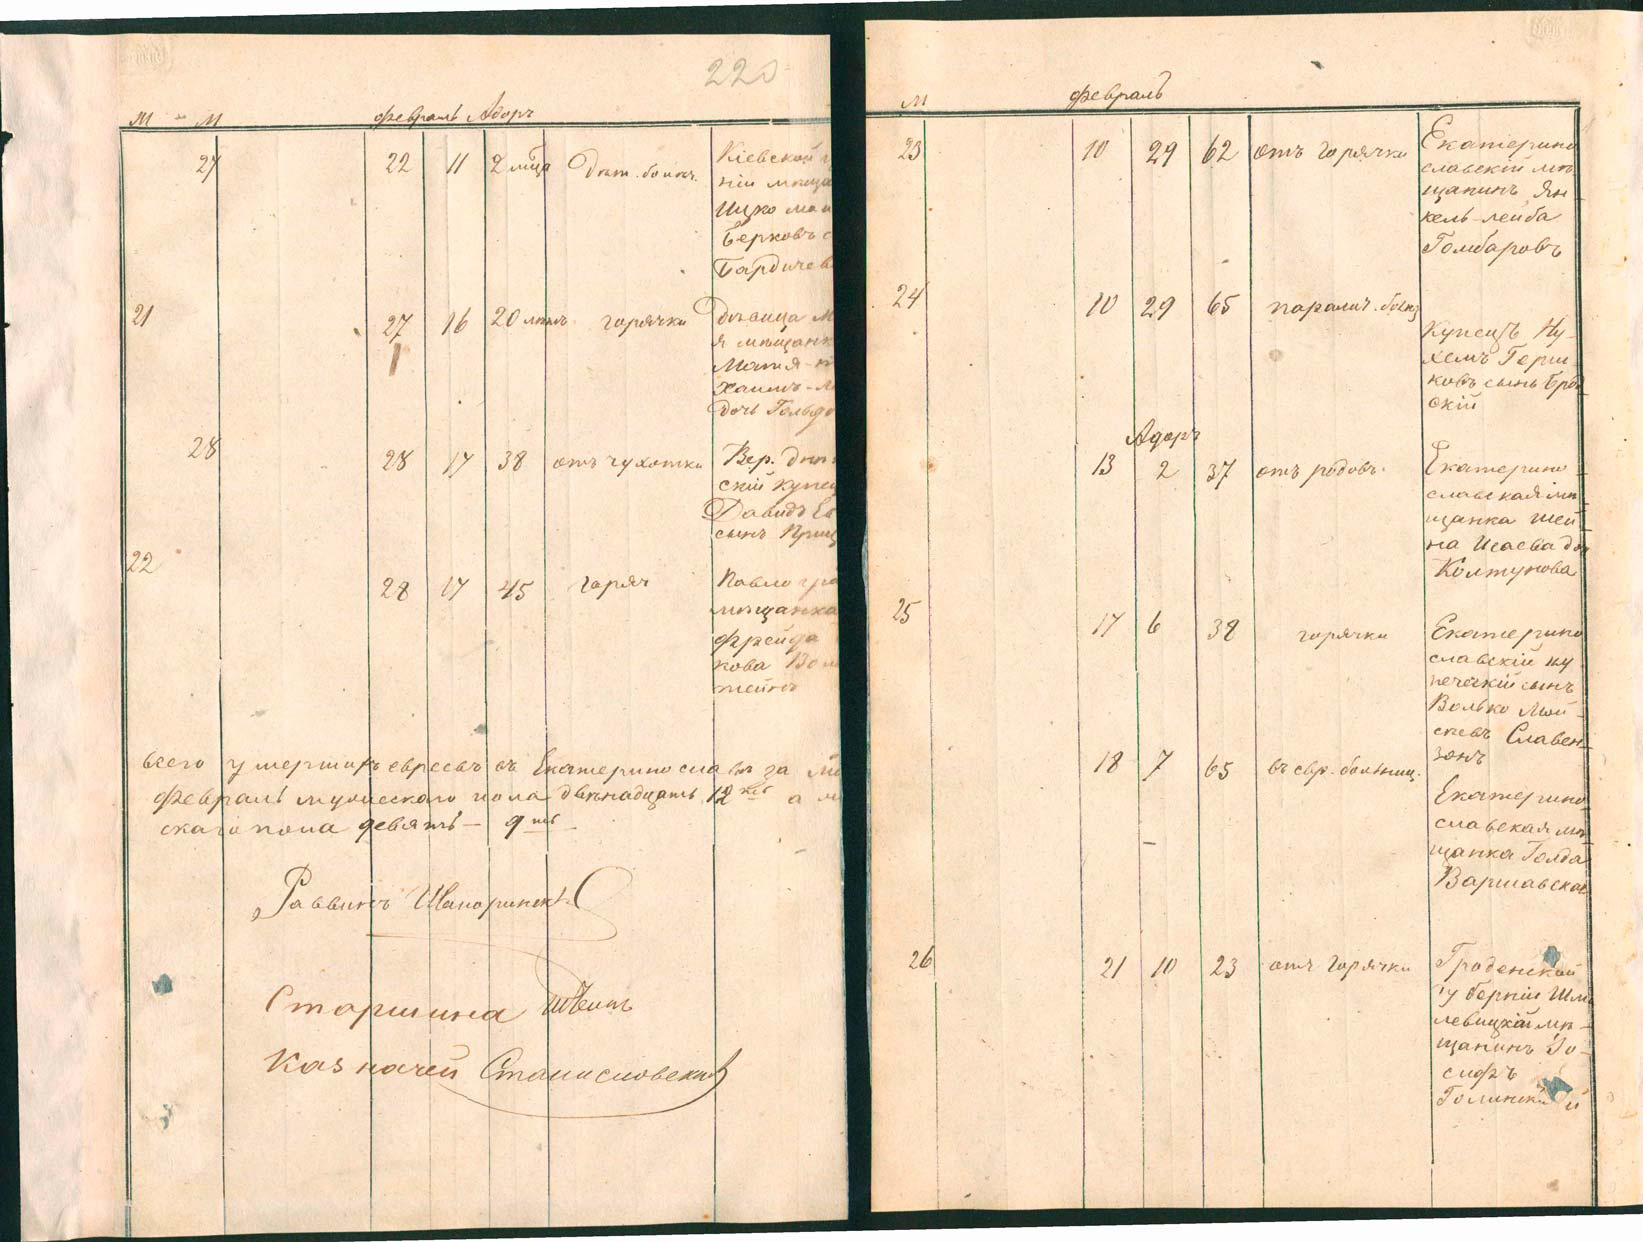 220
М - М февраль Адоръ
27 22 11 2 мѣца Дѣт. болѣз.
Кіевской г
ніи мѣща
Ицко
Берковъ с
Бардичев
21 27 16 20 лѣтъ горячки
Дѣвица М
я мѣщанк
Хаимъ-
дочь Гольдо
28 28 17 38 отъ чухотки
Вер. Днѣп
скій купец
Давидъ Ев
сынъ Приц
22 28 17 45 горяч
Павлогра
мѣщанка
Фрейда
кова Вол
тейнъ
Всего умершихъ евреевъ въ Екатеринославѣ за
Февраль мужескаго пола двѣнадцать 12ть а
скаго пола девять - 9ть
Раввинъ Шапоринскі
Старшина
Казначей Станисловскій
М февраль
23 10 29 62 отъ горячки
Екатерино
славскій мѣ
щанинъ Ян
кель-лейба
Гомбаровъ
24 10 29 65 паралич. болѣз
Купецъ Ну-
хемъ Герш
ковъ сынъ Брод
скій
Адоръ
13 2 37 отъ родовъ.
Екатерино-
славская мѣ
щанка Шей
на Исаева до
Колтунова
25 17 6 38 горячки
Екатерино
славскій ку
печескій сынъ
Волько Мой-
сеевъ Славен
зонъ
18 7 65 въ евр. больниц.
Екатерино
славская мѣ
щанка Голда
Варшавская
26 21 10 23 отъ горячки
Гроденской
губерніи Шм
левицкій мѣ-
щанинъ Іо-
сифъ
Голинскій